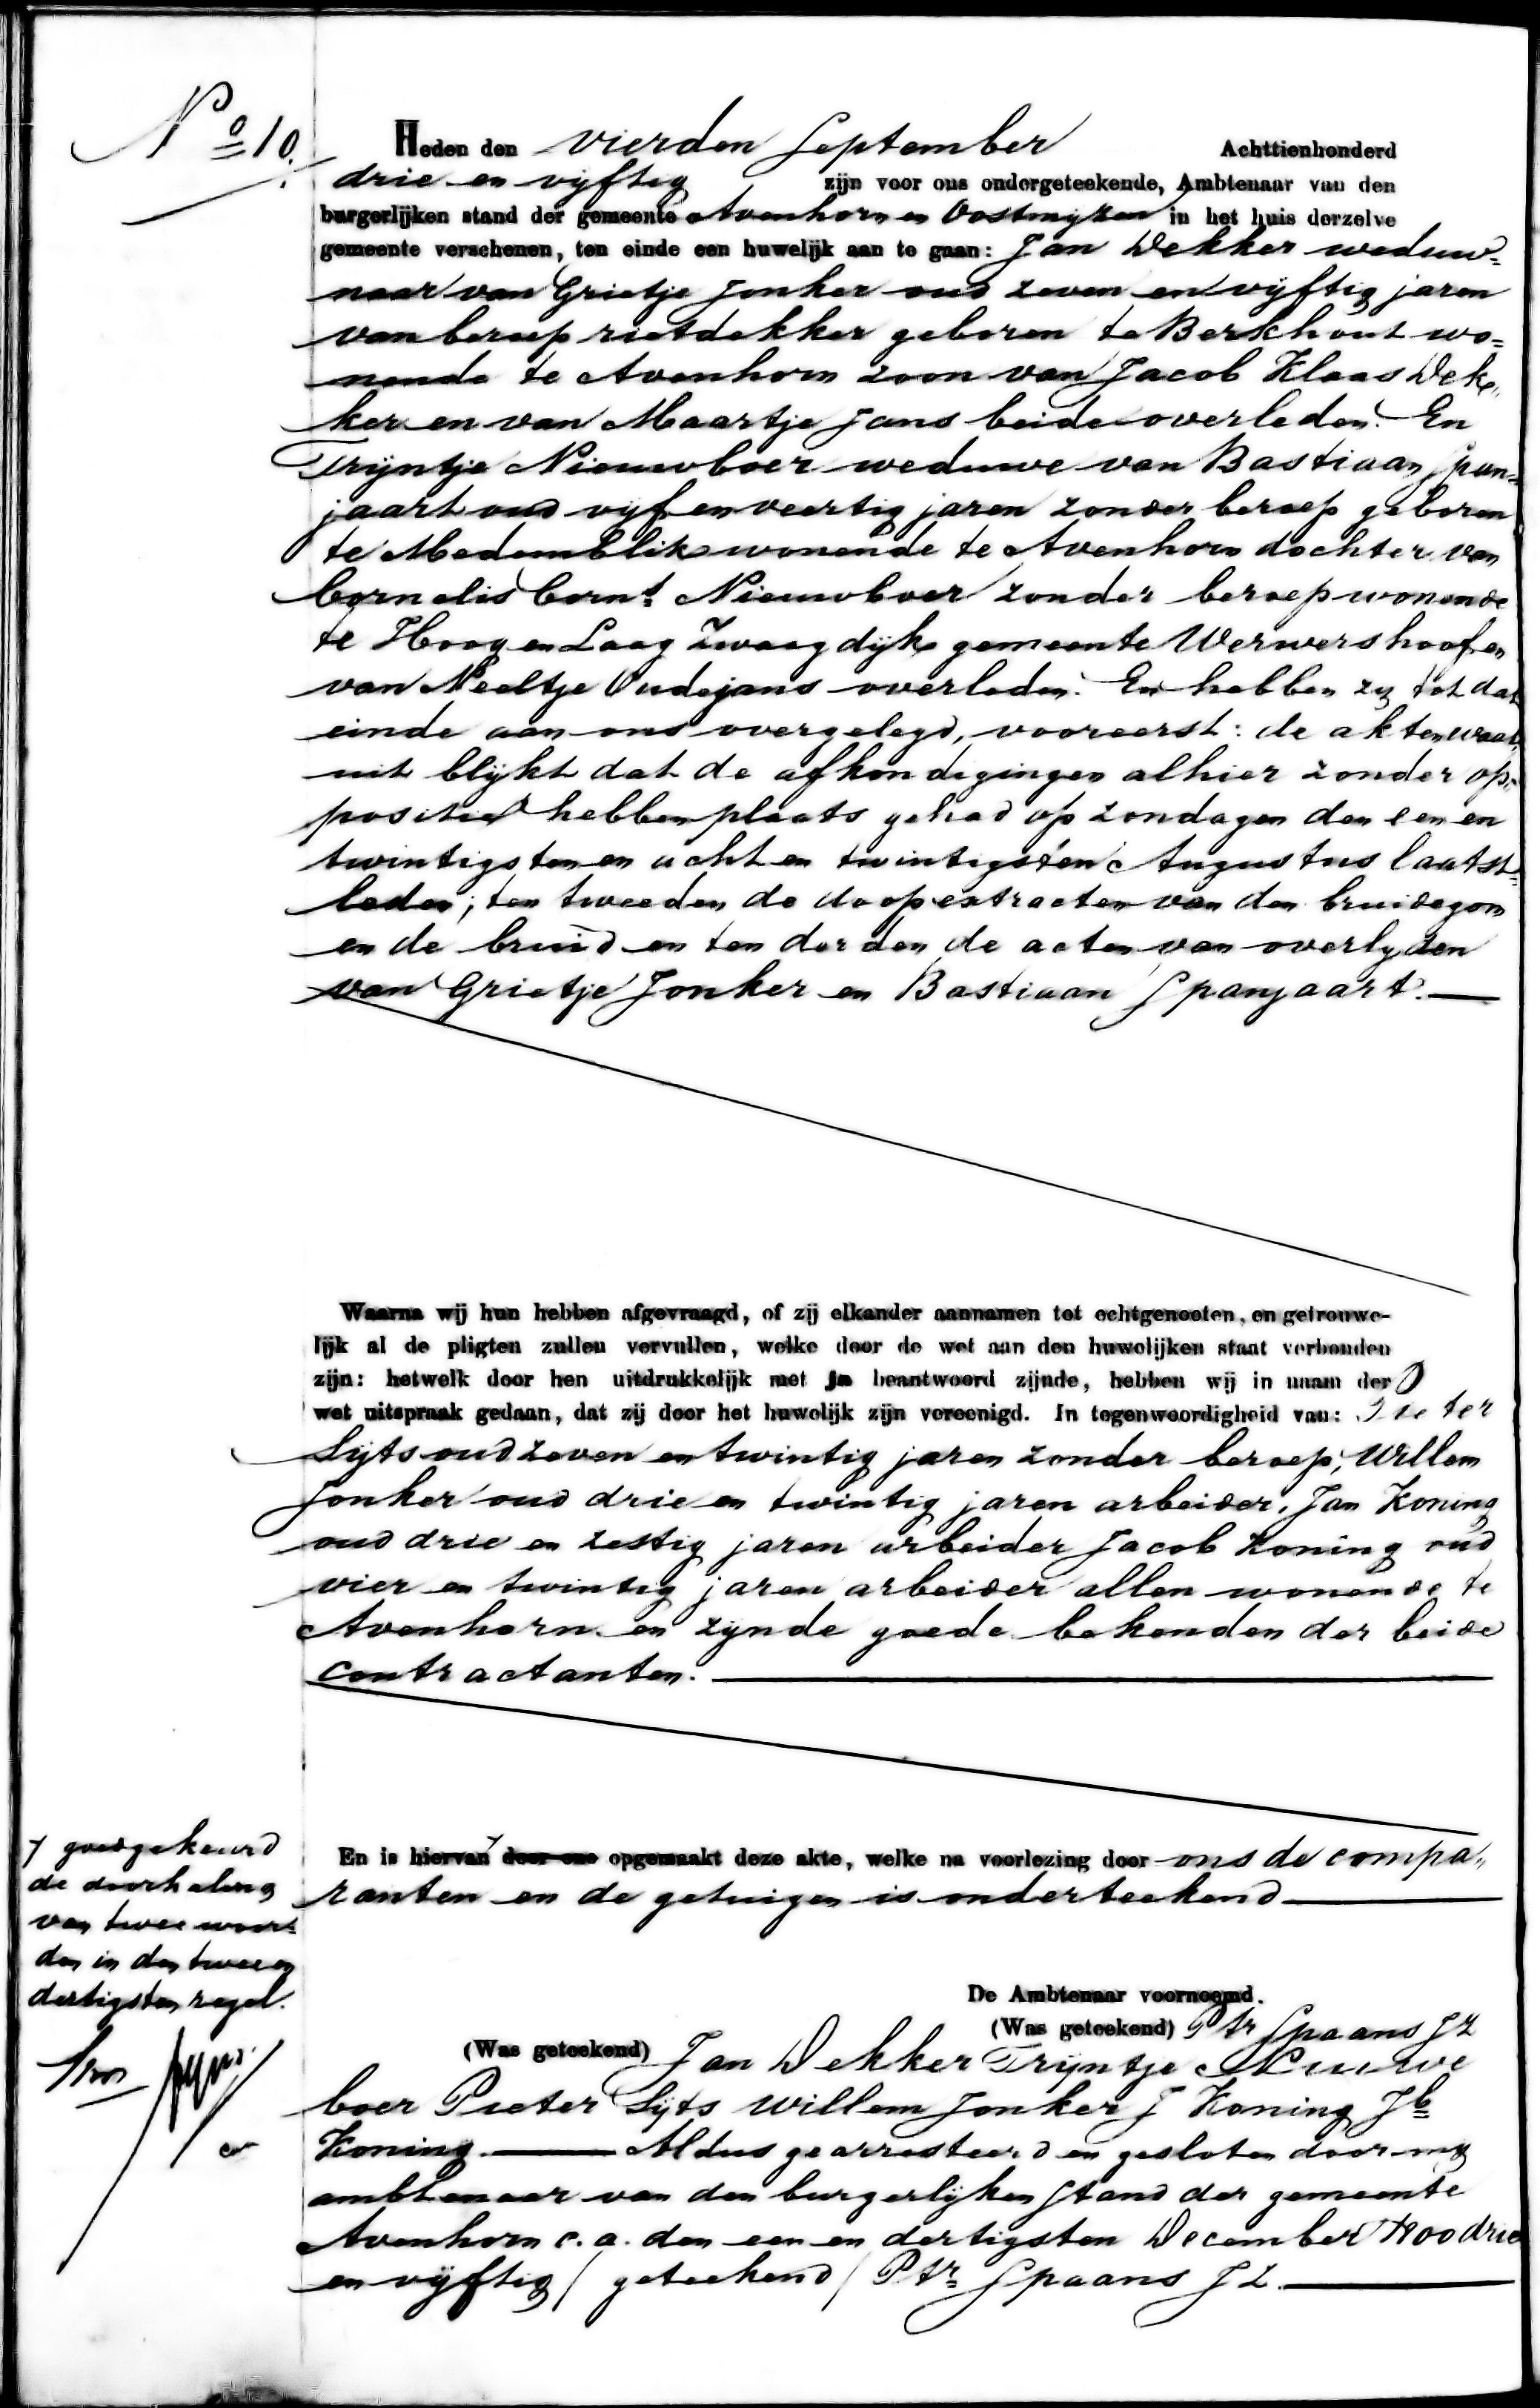 No 10.
Heden den vierden September Achttienhonderd
drie en vijftig zijn voor ons ondergeteekende, Ambtenaar van den
burgerlijken stand der gemeente Avenhorn en Oostmijzen in het huis derzelve
gemeente verschenen, ten einde een huwelijk aan te gaan: Jan Dekker weduw=
naar van Grietje Jonker oud zeven en vijftig jaren
van beroep rietdekker geboren te Berkhout wo=
nende te Avenhorn zoon van Jacob Klaas Dek„
ker en van Maartje Jans beide overleden. En
Trijntje Nieuwboer weduwe van Bastiaan Span=
jaart oud vijf en veertig jaren zonder beroep geboren
te Medemblik wonende te Avenhorn dochter van
Cornelis Corns Nieuwboer zonder beroep wonende
te Hoog en Laag Zwaagdijk gemeente Werwershoof en
van Neeltje Oudejans overleden. En hebben zij tot dat
einde aan ons overgelegd, vooreerst: de akten waar„
uit blijkt dat de afkondigingen alhier zonder op=
positie hebben plaats gehad op zondagen den een en
twintigsten en acht en twintigsten Augustus laatst=
leden; ten tweeden de doopextracten van den bruidegom
en de bruid en ten derden de acten van overlyden
van Grietje Jonker en Bastiaan Spanjaart.
Waarna wij hun hebben afgevraagd, of zij elkander aannamen tot echtgenooten, en getrouwe-
lijk al de pligten zullen vervullen, welke door de wet aan den huwelijken staat verbonden
zijn: hetwelk door hen uitdrukkelijk met ja beantwoord zijnde, hebben wij in naam der
wet uitspraak gedaan, dat zij door het huwelijk zijn vereenigd. In tegenwoordigheid van: Pieter
Sijts oud zeven en twintig jaren zonder beroep, Willem
Jonker oud drie en twintig jaren arbeider, Jan Koning
oud drie en zestig jaren arbeider Jacob Koning oud
vier en twintig jaren arbeider allen wonende te
Avenhorn en zijnde goede bekenden der beide
contractanten.
En is hiervan door ons opgemaakt deze akte, welke na voorlezing door ons de compa„
ranten en de getuigen is onderteekend
goedgekeurd
de doorhaling
van twee woor=
den in den twee en
dertigsten regel.
De Ambtenaar voornoemd.
(Was geteekend) Ptr Spaans JZ
(Was geteekend) Jan Dekker Trijntje Nieuwe
boer Pieter Sijts Willem Jonker J Koning Jb
Koning Aldus gearresteerd en gesloten door mij
ambtenaar van den burgerlijken stand der gemeente
Avenhorn c. a. den een en dertigsten December 1800 drie
en vijftig / geteekend / Ptr Spaans JZ.